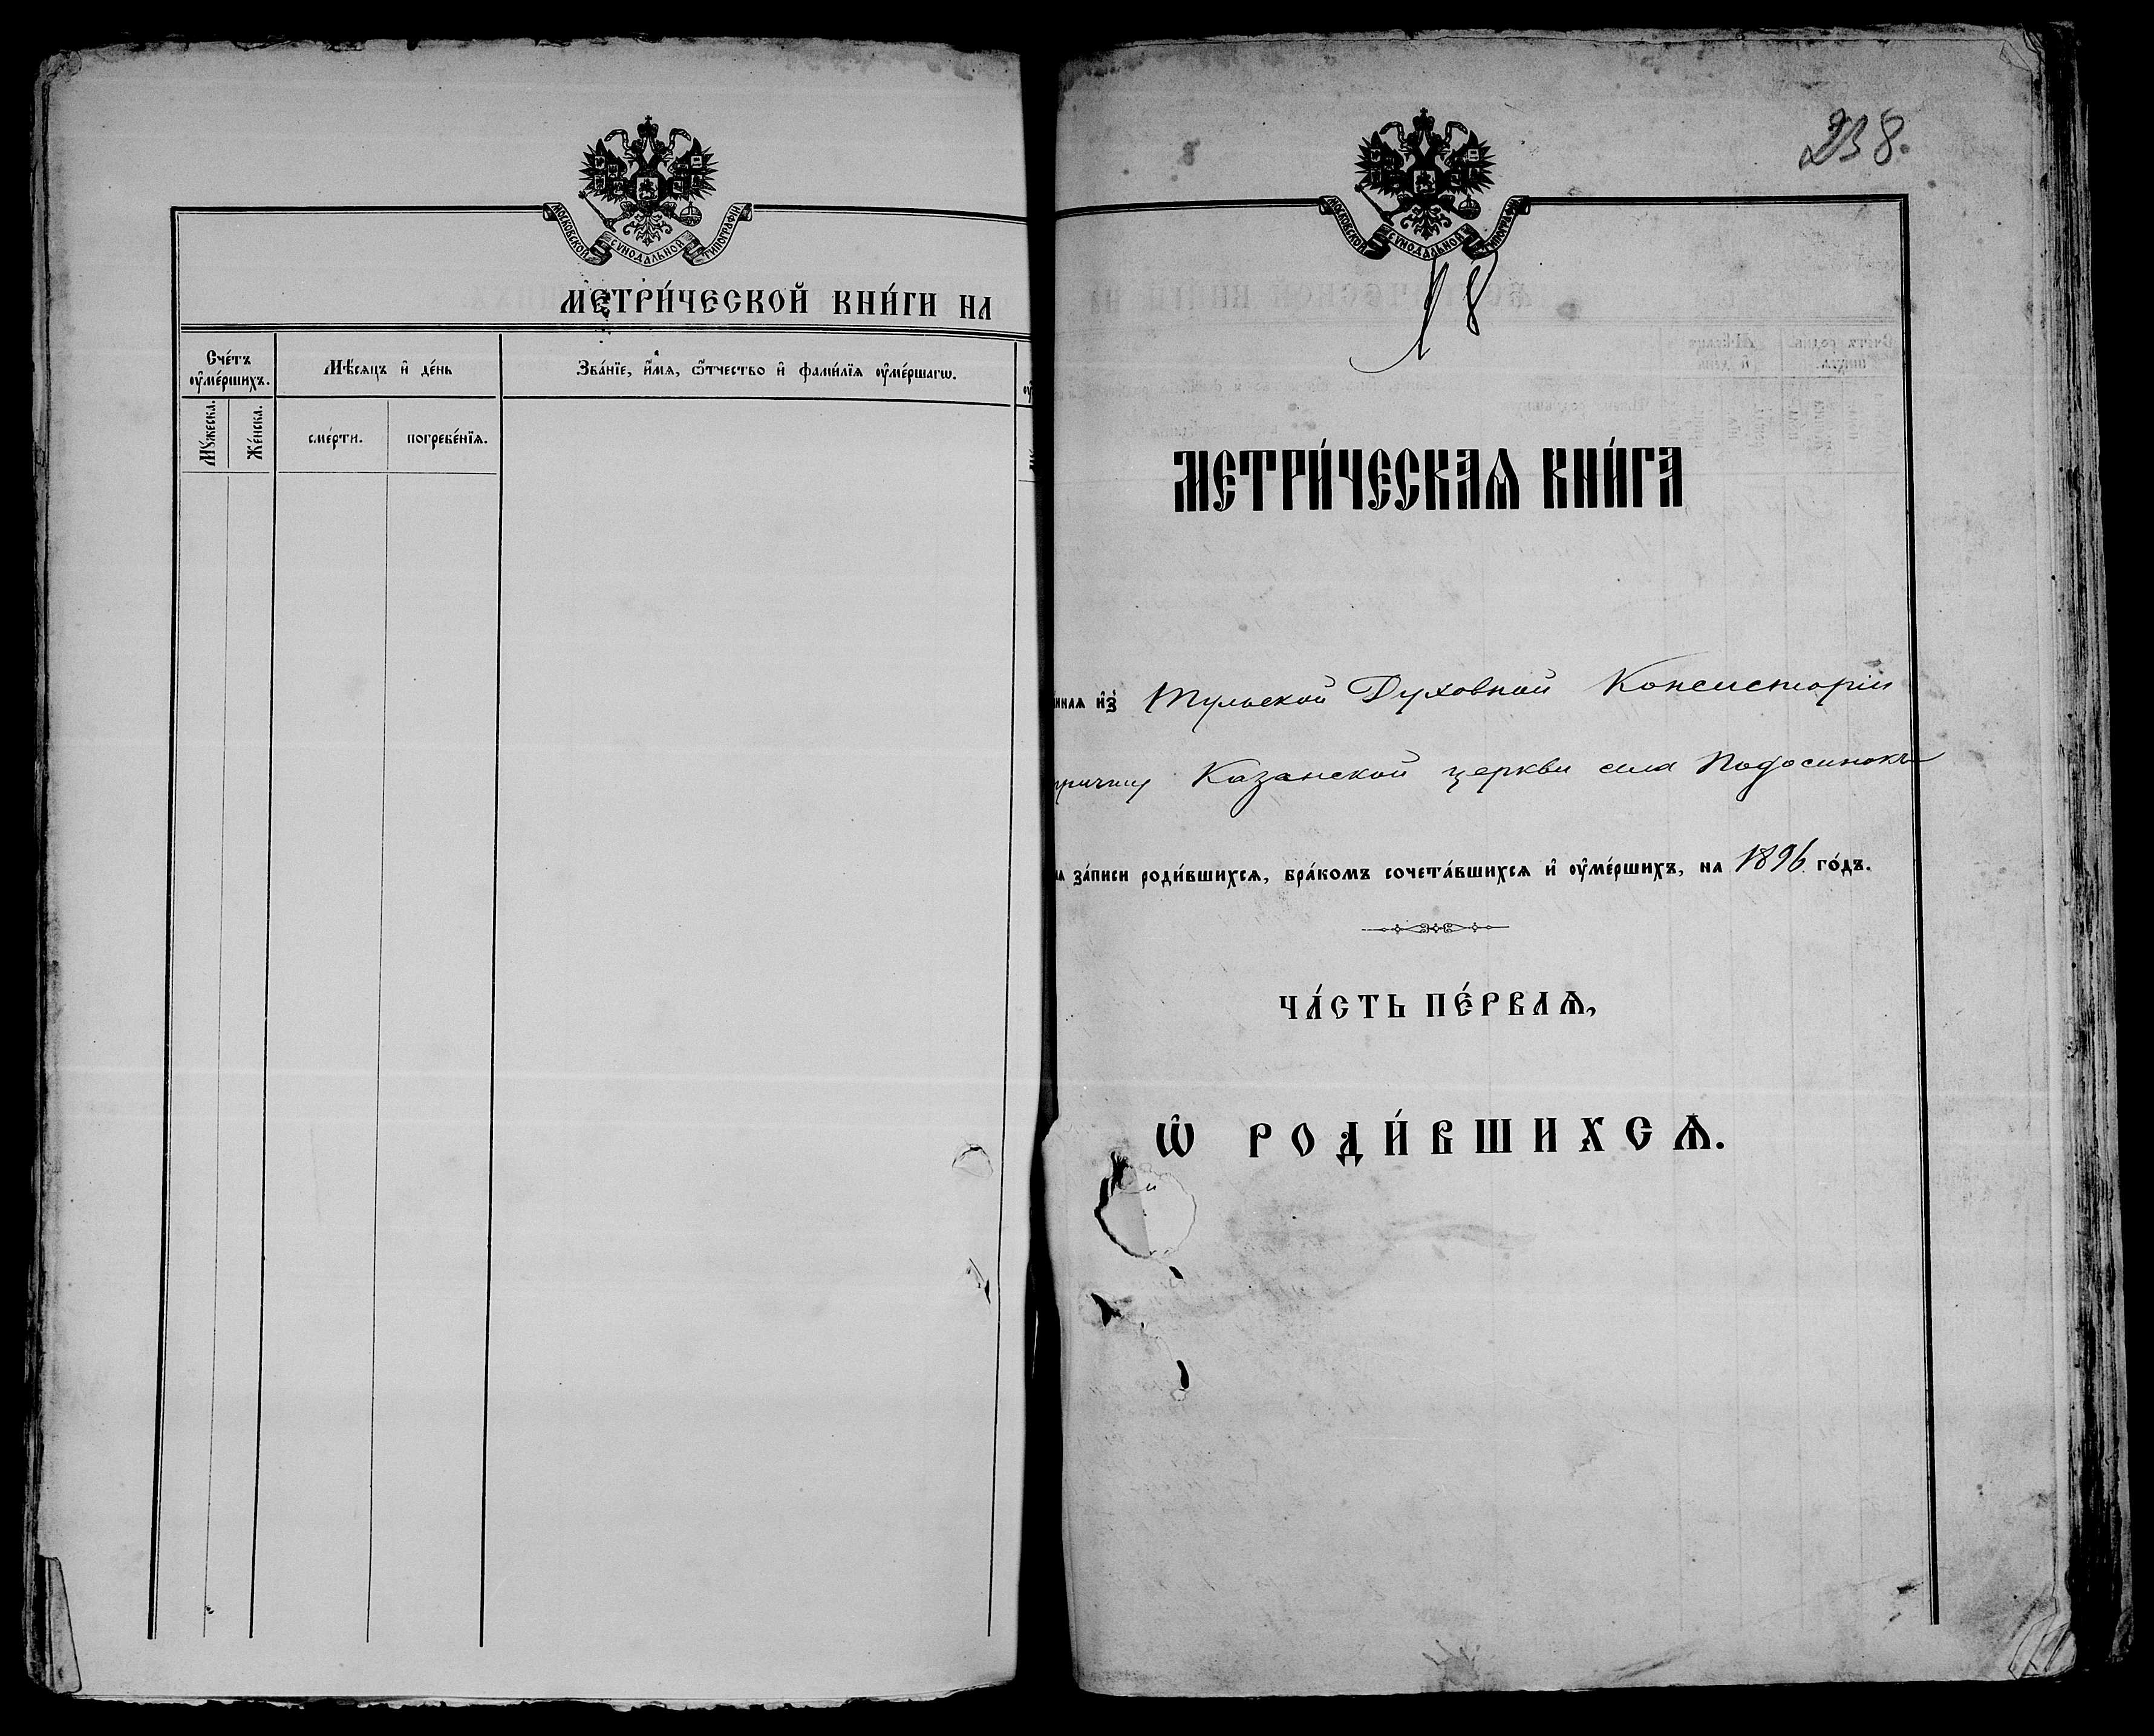 МОСКОВСКОЙ СѴНОДАЛЬНОЙ ТИПОГРАФІИ
МЕТРИ́ЧЕСКОЙ КНИ́ГИ НА
Сче́тъ ᲂу҆ме́ршихъ.
Мѣ́сяцъ и҆ де́нь
Зва́нїе, и҆́мѧ, ѻ҆́тчество и҆ фами́лїѧ ᲂу҆ме́ршагѡ.
Мꙋ́жеска.
Же́нска.
сме́рти.
погребе́нїѧ.
238.
МОСКОВСКОЙ СѴНОДАЛЬНОЙ ТИПОГРАФІИ
18
МЕТРИ́ЧЕСКАѦ КНИ́ГА
ннаѧ и҆з̾ Тульской Духовной Консисторіи
причту Казанской церкви села Подосинокъ
за́писи роди́вшихсѧ, бра́комъ сочета́вшихсѧ и҆ ᲂу҆ме́ршихъ, на 1896 го́дъ.
ЧА́СТЬ ПЕ́РВАѦ,
Ѡ҆ РОДИ́ВШИХСѦ.